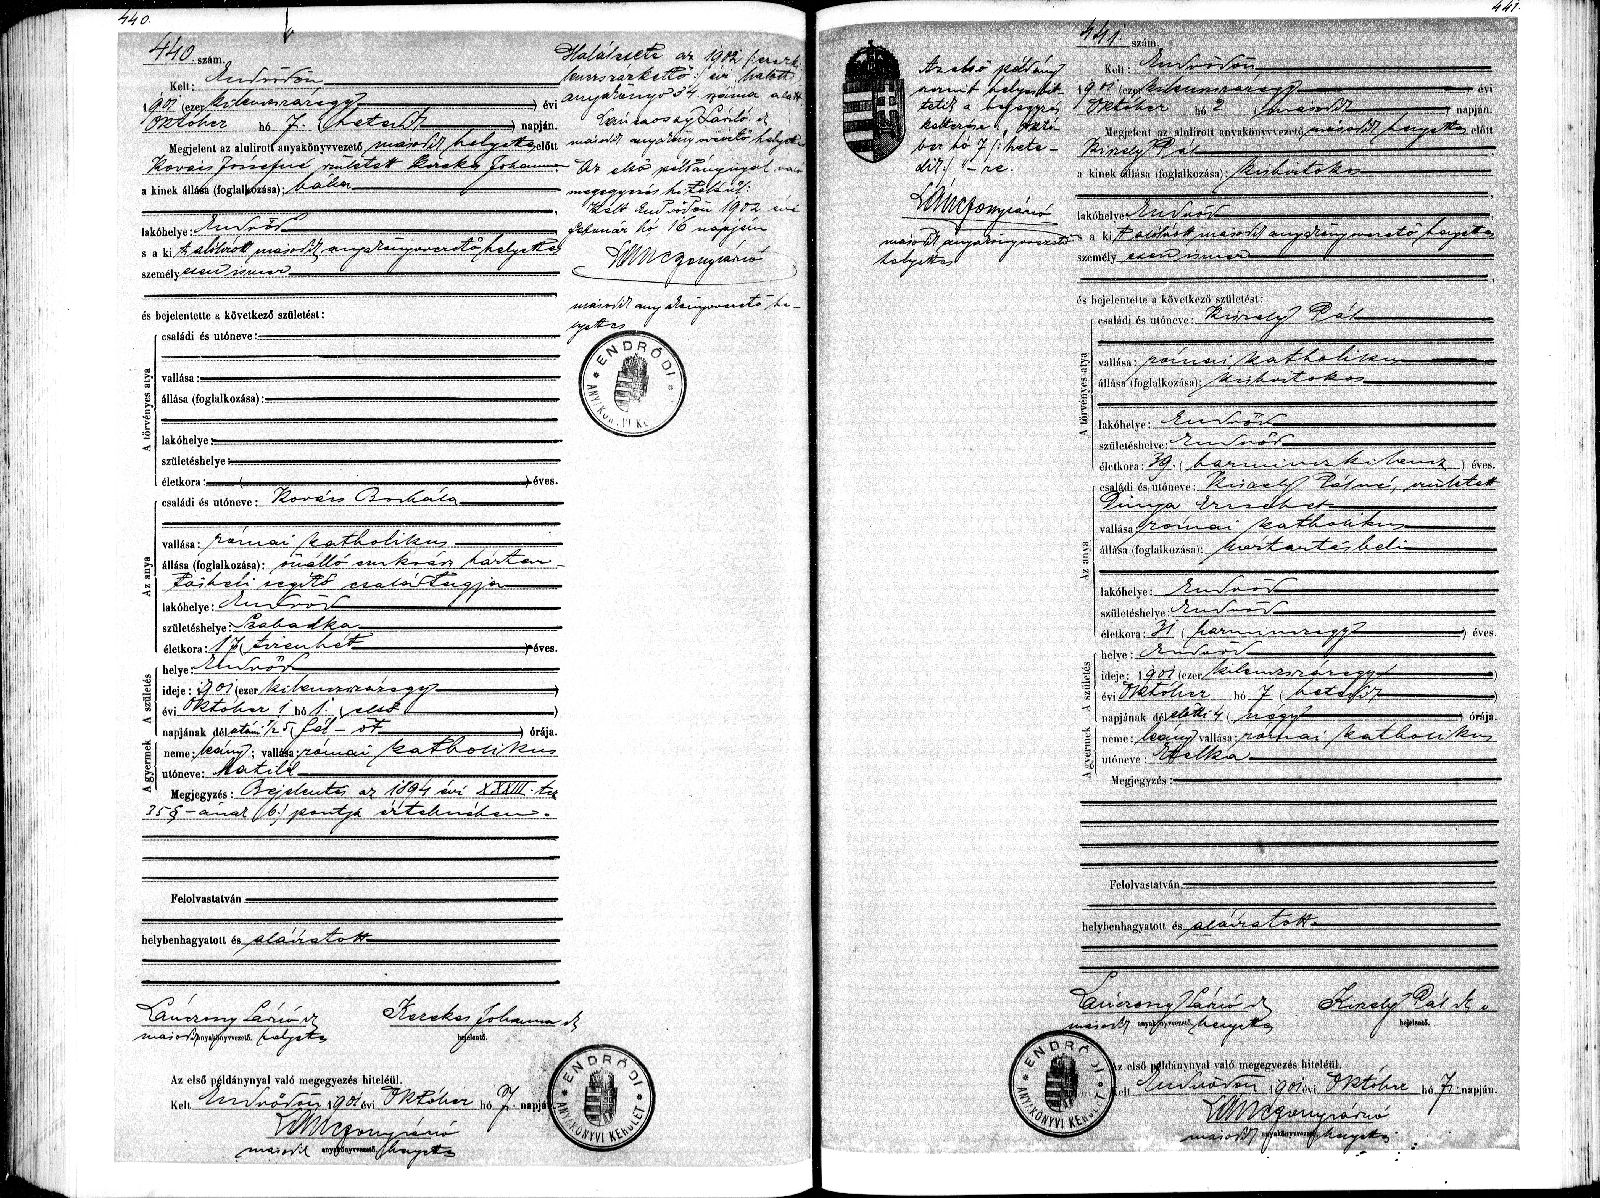 440.
440. szám.
Kelt: Endrődön
1901 (ezer kilenczszázegy) évi
Október hó 7. (hetedik) napján.
Megjelent az alulírott anyakönyvvezető másodh helyettes előtt
Kovács Józsefné született Kerekes Johanna
a kinek állása (foglalkozása): bába
lakóhelye: Endrőd
s a kit alólírott másodh anyakönyvvezető helyettes
személyesen ismer
és bejelentette a következő születést:
A törvényes atya
családi és utóneve:
vallása:
állása (foglalkozása):
lakóhelye:
születéshelye:
életkora: ( ) éves.
Az anya
családi és utóneve: Kovács Borbála
vallása: római katholikus
állása (foglalkozása): önálló háztar-
tásbeli segítő családtagja
lakóhelye: Endrőd
születéshelye: Szabadka
életkora: 17 (tizenhét) éves.
A születés
helye: Endrőd
ideje: 1901 (ezer kilenczszázegy)
évi Október hó 1. (első)
napjának délutáni 1/2 5 (fél-öt) órája.
A gyermek
neme: leány; vallása: római katholikus
utóneve: Matild
Megjegyzés: Bejelentés az 1894 évi XXXIII. tcz
35 §-ának (b) pontja értelmében.
Felolvastatván
helybenhagyatott és aláíratott
Lánczony László sk
másodh anyakönyvvezető helyettes
Kerekes Johanna sk
bejelentő.
Az első példánynyal való megegyezés hiteléül.
Kelt Endrődön 1901 évi Október hó 7. napján.
Lánczony László
másodh anyakönyvvezető helyettes
ENDRŐDI ANYAKÖNYVI KERÜLET
Halálesete az 1902 (ezer
kilenczszázkettő) évi halotti
anyakönyv 34 száma alatt
Lánczony László sk
másodh anyakönyvvezető helyettes
Az első példánynyal való
megegyezés hiteléül:
Kelt Endrődön 1902 évi
február hó 16 napján
Lánczony László
másodh anyakönyvvezető he-
lyettes
ENDRŐDI
441.
441. szám.
Kelt: Endrődön
1901 (ezer kilenczszázegy) évi
Október hó 7 napján.
Megjelent az alulírott anyakönyvvezető másodh helyettes előtt
Király Pál
a kinek állása (foglalkozása): kisbirtokos
lakóhelye: Endrőd
s a kit alólírott másodh anyakönyvvezető helyettes
személyesen ismer
és bejelentette a következő születést:
A törvényes atya
családi és utóneve: Király Pál
vallása: római katholikus
állása (foglalkozása): kisbirtokos
lakóhelye: Endrőd
születéshelye: Endrőd
életkora: 39. (harminczkilencz) éves.
Az anya
családi és utóneve: Király Pálné, született
Dinya Erzsébet
vallása: római katholikus
állása (foglalkozása): háztartásbeli
lakóhelye: Endrőd
születéshelye: Endrőd
életkora: 31 (harminczegy) éves.
A születés
helye: Endrőd
ideje: 1901 (ezer kilenczszázegy)
évi Október hó 7 (hetedik)
napjának délelőtti 4 (négy) órája.
A gyermek
neme: leány vallása: római katholikus
utóneve: Etelka
Megjegyzés:
Felolvastatván
helybenhagyatott és aláíratott
Lánczony László sk
másodh anyakönyvvezető helyettes
Király Pál sk.
bejelentő.
Az első példánynyal való megegyezés hiteléül.
Kelt Endrődön 1901 évi Október hó 7. napján.
Lánczony László
másodh anyakönyvvezető helyettes
ENDRŐDI ANYAKÖNYVI KERÜLET
Az első példány
szerint helyesbít-
tetik a bejegyzés
keltezése „Októ-
ber hó 7 (hete-
dik)"-re.
Lánczony László
másodh anyakönyvvezető
helyettes